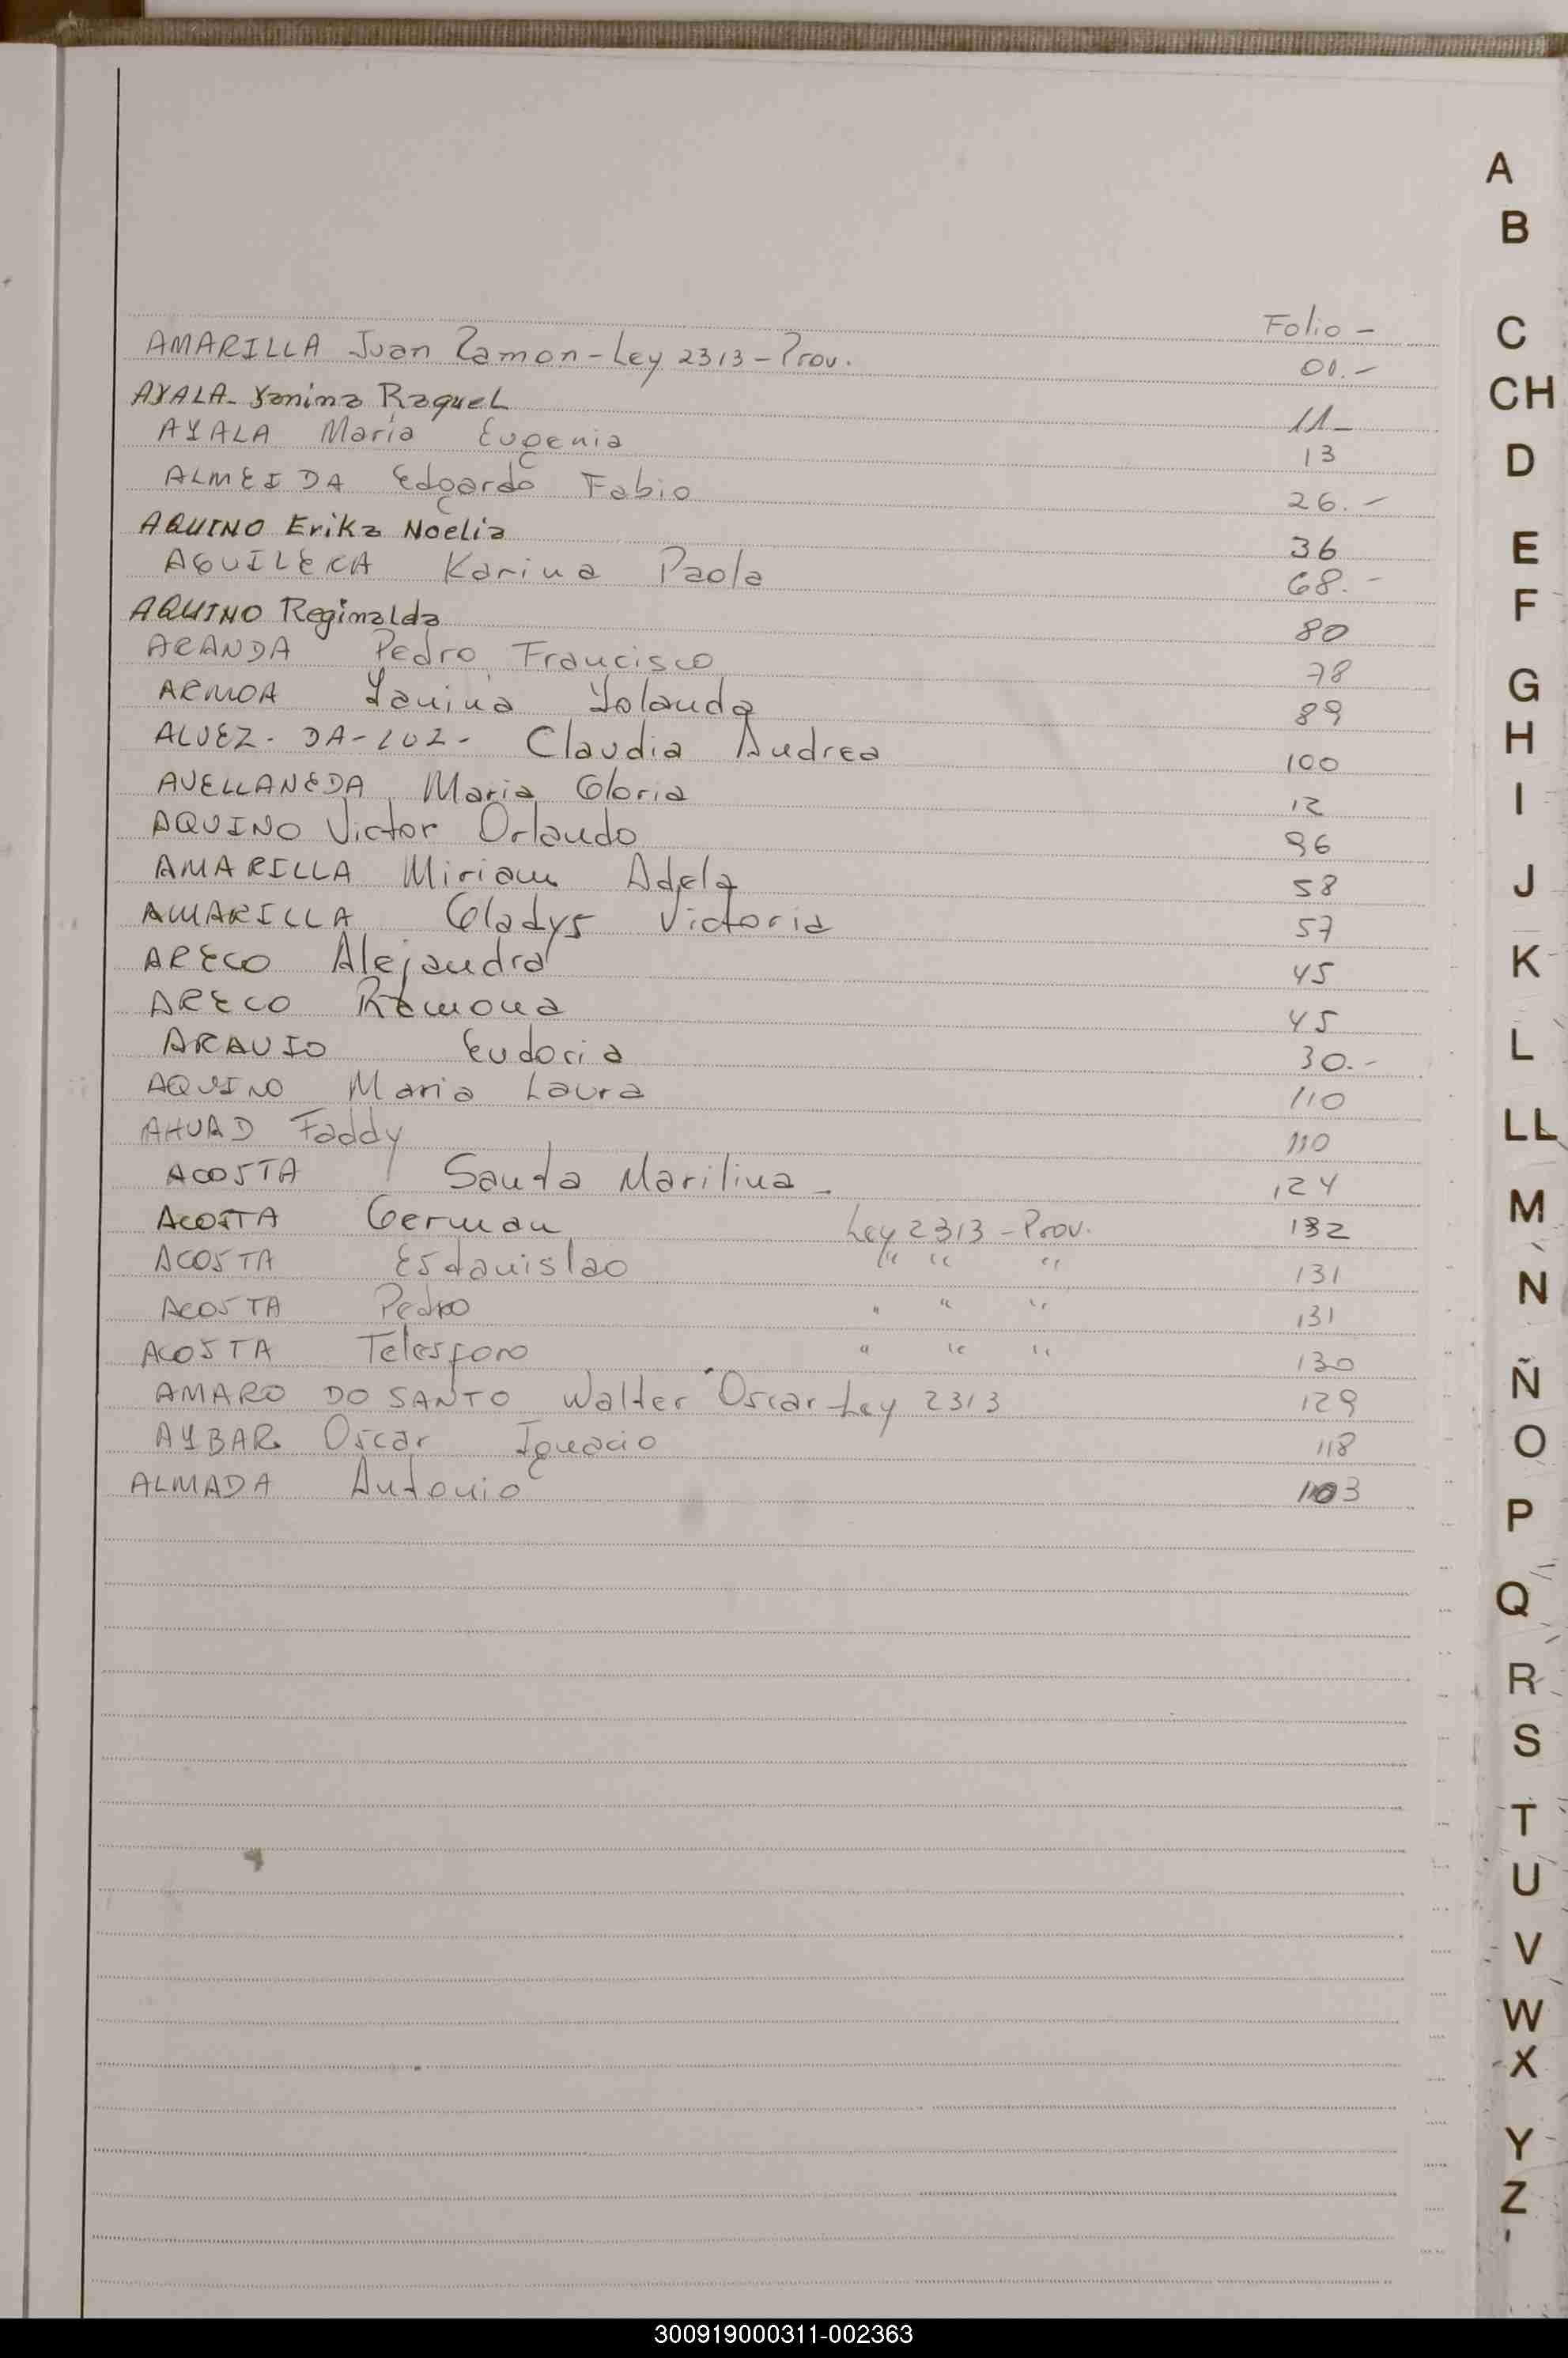 Folio -
AMARILLA Juan Ramon - Ley 2313 - Prov. 01.-
AYALA - Yanina Raquel 11-
AYALA Maria Eugenia 13
ALMEIDA Edgardo Fabio 26.-
AQUINO Erika Noelia 36
AGUILERA Karina Paola 68.-
AQUINO Reginalda 80
ARANDA Pedro Francisco 78
ARMOA Yanina Yolanda 89
ALVEZ - DA - LUZ - Claudia Andrea 100
AVELLANEDA Maria Gloria 12
AQUINO Victor Orlando 96
AMARILLA Miriam Adela 58
AMARILLA Gladys Victoria 57
ARECO Alejandra 45
ARECO Ramona 45
ARAUJO Eudoria 30.-
AQUINO Maria Laura 110
AHUAD Faddy 110
ACOSTA Santa Marilina - 124
ACOSTA German Ley 2313 - Prov. 132
ACOSTA Estanislao " " " 131
ACOSTA Pedro " " " 131
ACOSTA Telesforo " " " 130
AMARO DO SANTO Walter Oscar - Ley 2313 129
AYBAR Oscar Ignacio 118
ALMADA Antonio 103
A
B
C
CH
D
E
F
G
H
I
J
K
L
LL
M
N
Ñ
O
P
Q
R
S
T
U
V
W
X
Y
Z
300919000311-002363